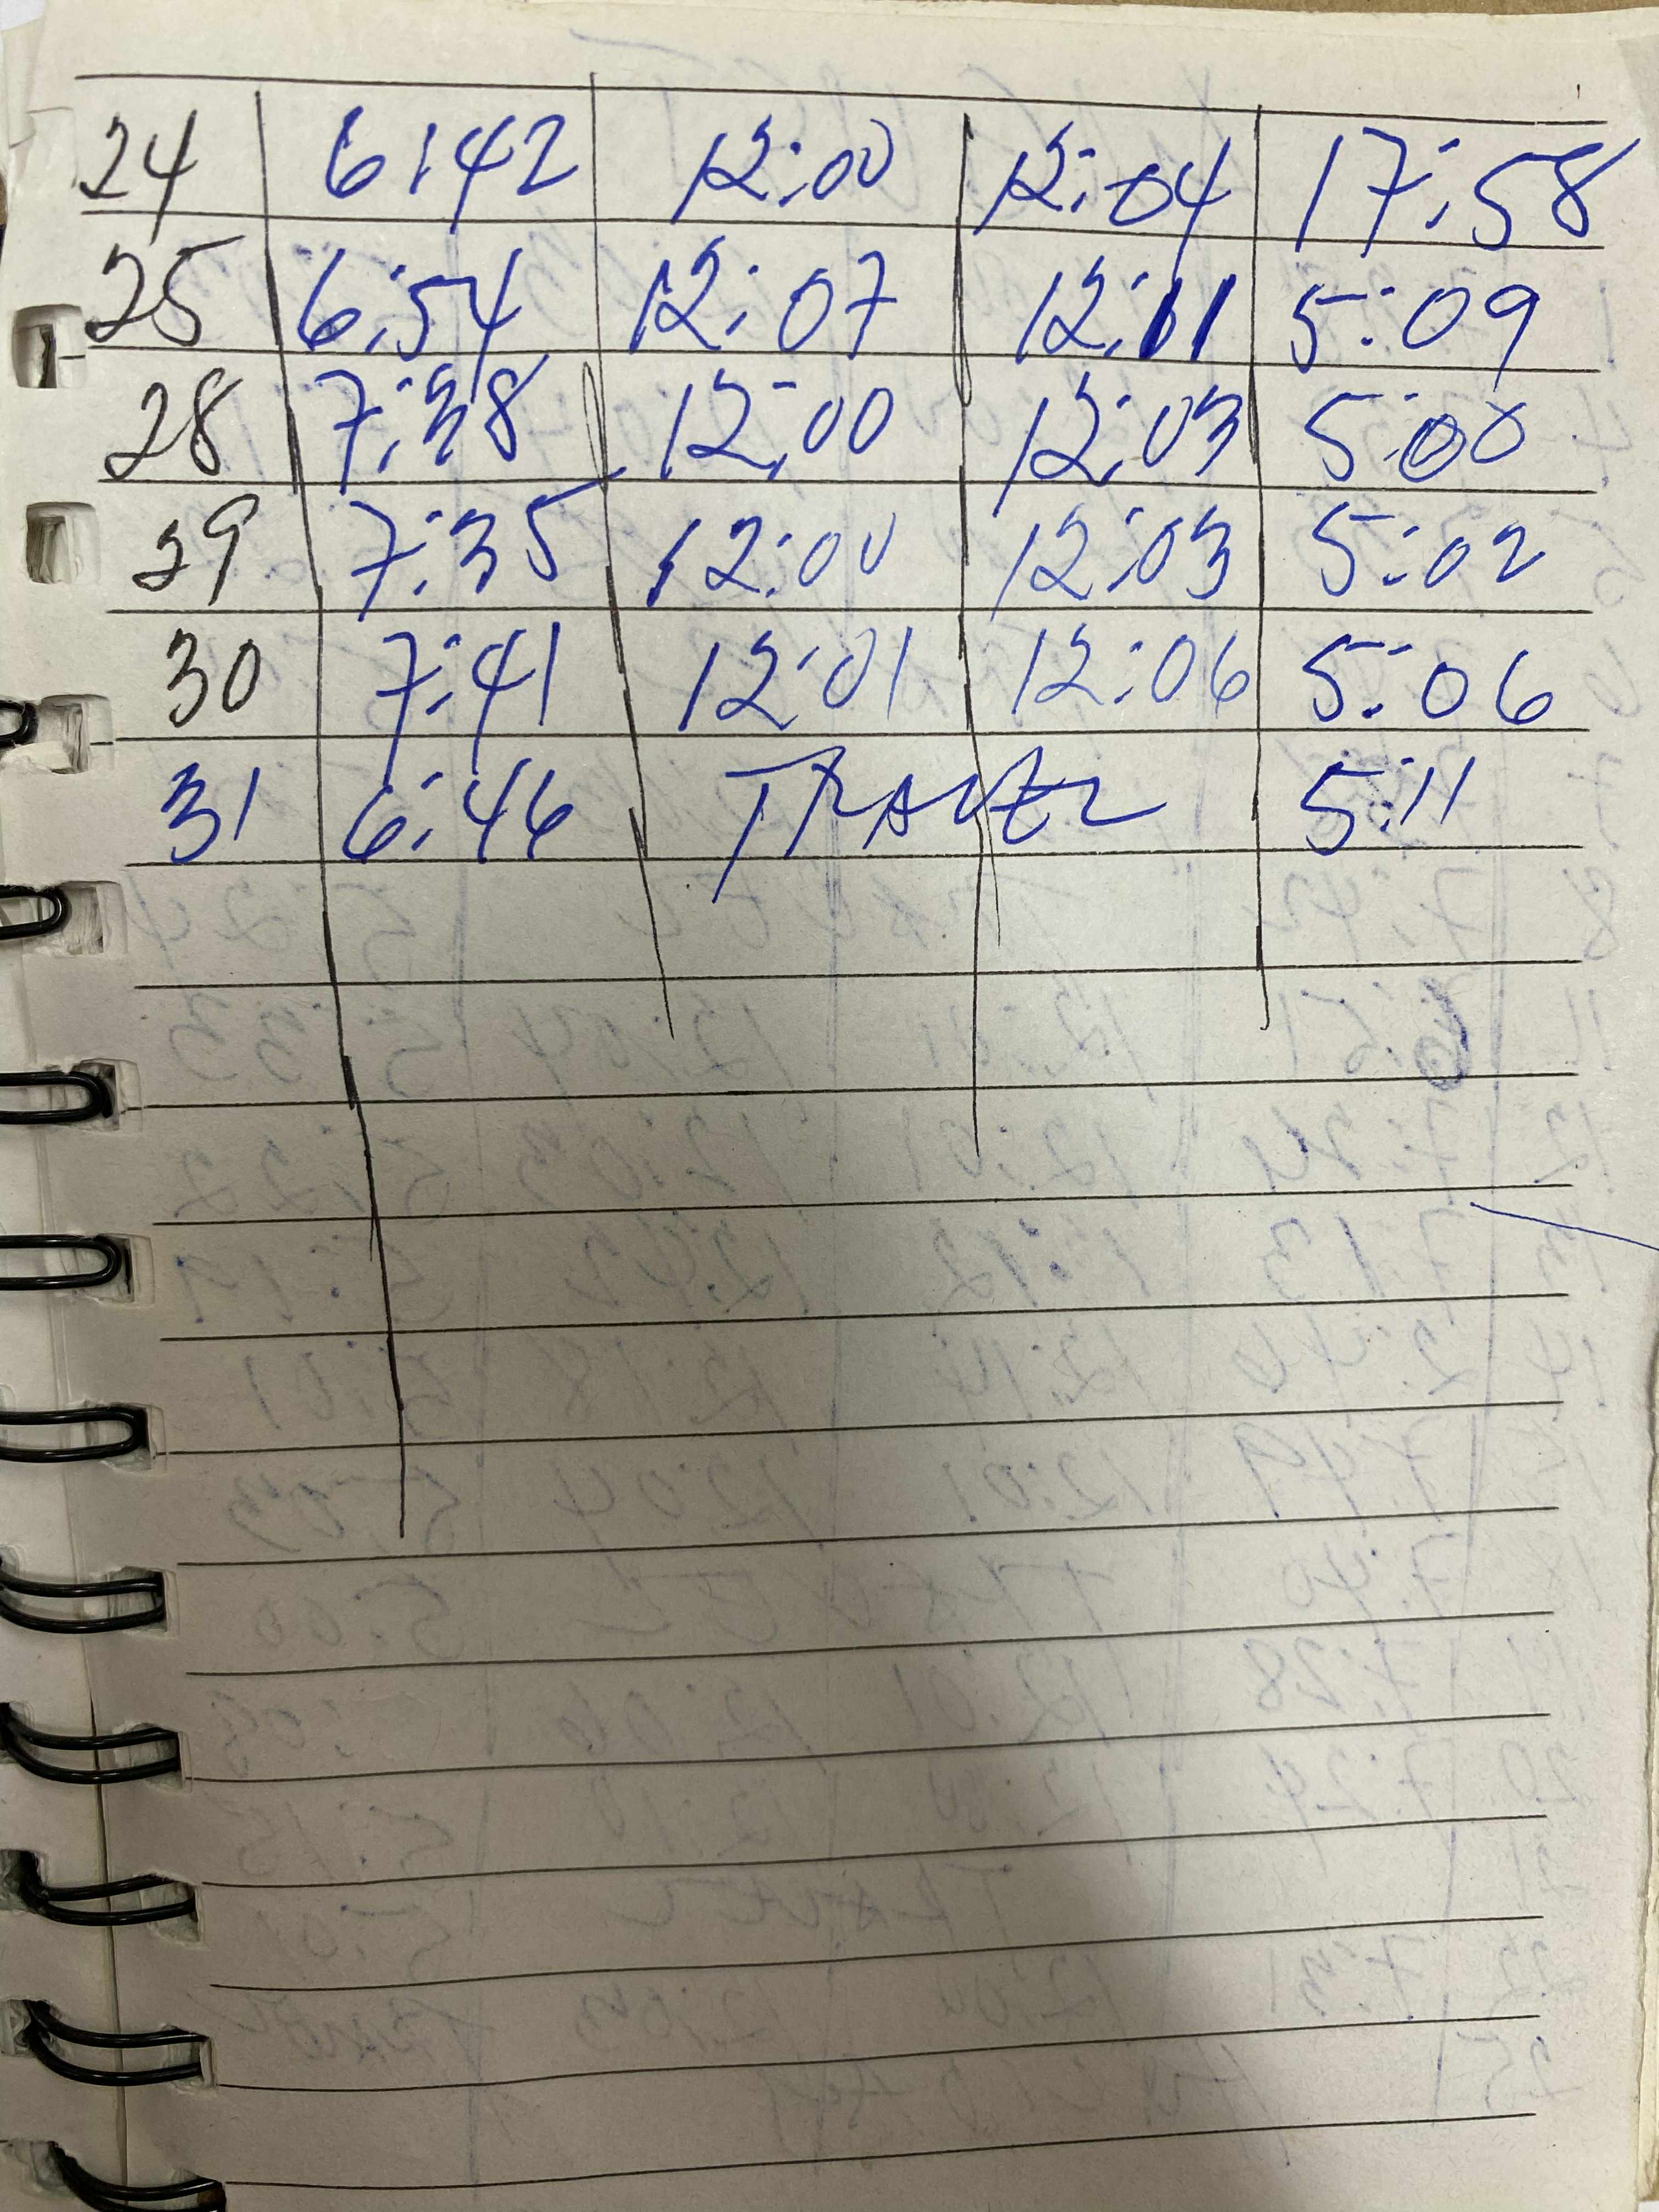 24 6:42 12:00 12:04 17:58
25 6:54 12:07 12:11 5:09
28 7:38 12:00 12:03 5:00
29 7:35 12:00 12:03 5:02
30 7:41 12:01 12:06 5:06
31 6:46 TRAVEL 5:11